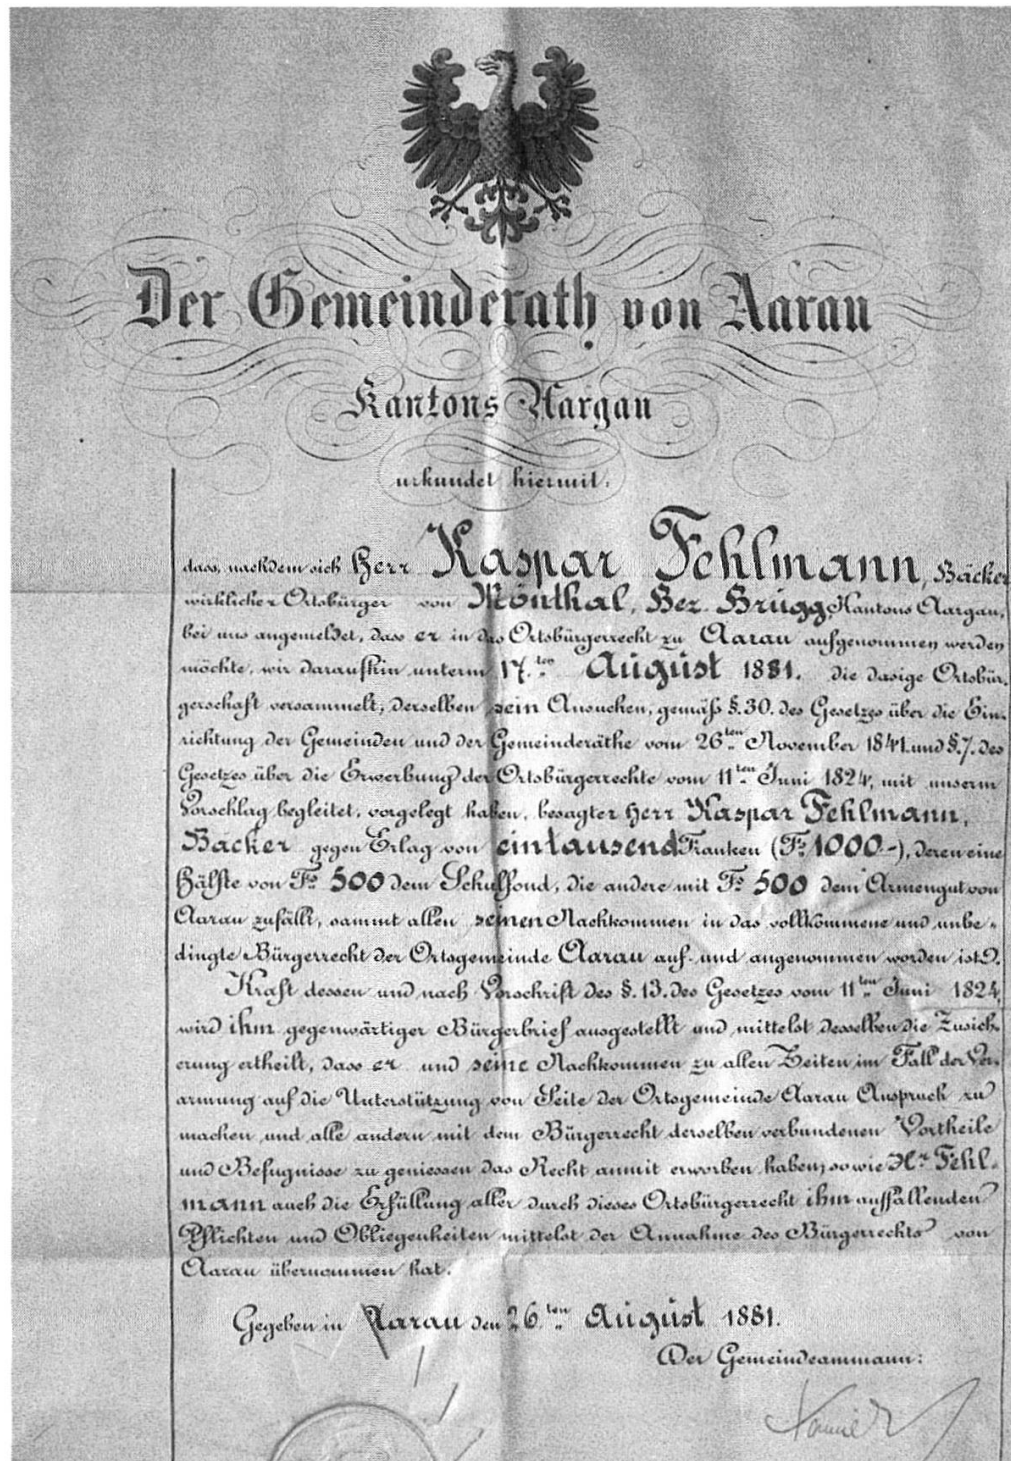 Der Gemeinderath von Aarau
Kantons Aargau
urkundet hiermit:
dass, nachdem sich Herr Kaspar Fehlmann, Bäcker
wirklicher Ortsbürger von Mönthal, Bez. Brugg, Kantons Aargau,
bei uns angemeldet, dass er in das Ortsbürgerrecht zu Aarau aufgenommen werden
möchte, wir daraufhin unterm 17.ten August 1881. die dasige Ortsbür-
gerschaft versammelt, derselben sein Ansuchen, gemäß §.30. des Gesetzes über die Ein-
richtung der Gemeinden und der Gemeinderäthe vom 26ten November 1841. und §.7. des
Gesetzes über die Erwerbung der Ortsbürgerrechte vom 11ten Juni 1824, mit unserm
Vorschlag begleitet, vorgelegt haben, besagter Herr Kaspar Fehlmann,
Bäcker gegen Erlag von eintausend Franken (Fr. 1000.-), deren eine
Hälfte von Fr. 500 dem Schulfond, die andere mit Fr. 500 dem Armengut von
Aarau zufällt, sammt allen seinen Nachkommen in das vollkommene und unbe-
dingte Bürgerrecht der Ortsgemeinde Aarau auf- und angenommen worden ist.
Kraft dessen und nach Vorschrift des §.13. des Gesetzes vom 11ten Juni 1824,
wird ihm gegenwärtiger Bürgerbrief ausgestellt und mittelst desselben die Zusich-
erung ertheilt, dass er und seine Nachkommen zu allen Zeiten im Fall der Ver-
armung auf die Unterstützung von Seite der Ortsgemeinde Aarau Anspruch zu
machen und alle andern mit dem Bürgerrecht derselben verbundenen Vortheile
und Befugnisse zu geniessen das Recht anmit erworben haben, sowie Hr. Fehl-
mann auch die Erfüllung aller durch dieses Ortsbürgerrecht ihm auffallenden
Pflichten und Obliegenheiten mittelst der Annahme des Bürgerrechts von
Aarau übernommen hat.
Gegeben in Aarau den 26.ten August 1881.
Der Gemeindeammann: